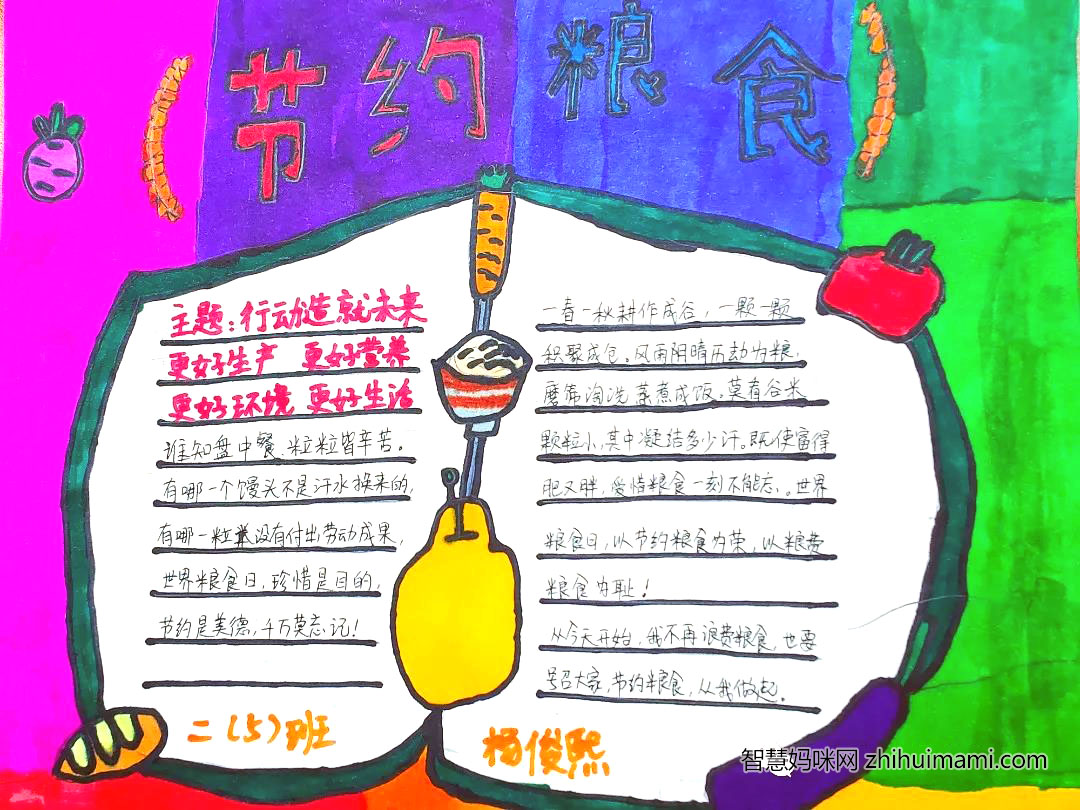 节约粮食
主题：行动造就未来
更好生产 更好营养
更好环境 更好生活
谁知盘中餐、粒粒皆辛苦。
有哪一个馒头不是汗水换来的，
有哪一粒米没有付出劳动成果，
世界粮食日，珍惜是目的，
节约是美德，千万莫忘记！
二（5）班
一春一秋耕作成谷，一颗一颗
积聚成仓。风雨阴晴历劫为粮，
磨筛淘洗蒸煮成饭。莫看谷米
颗粒小，其中凝结多少汗。既使富得
肥又胖，爱惜粮食一刻不能忘。世界
粮食日，以节约粮食为荣，以粮费
粮食为耻！
从今天开始，我不再浪费粮食，也要
号召大家，节约粮食，从我做起。
杨俊熙
智慧妈咪网 zhihuimami.com